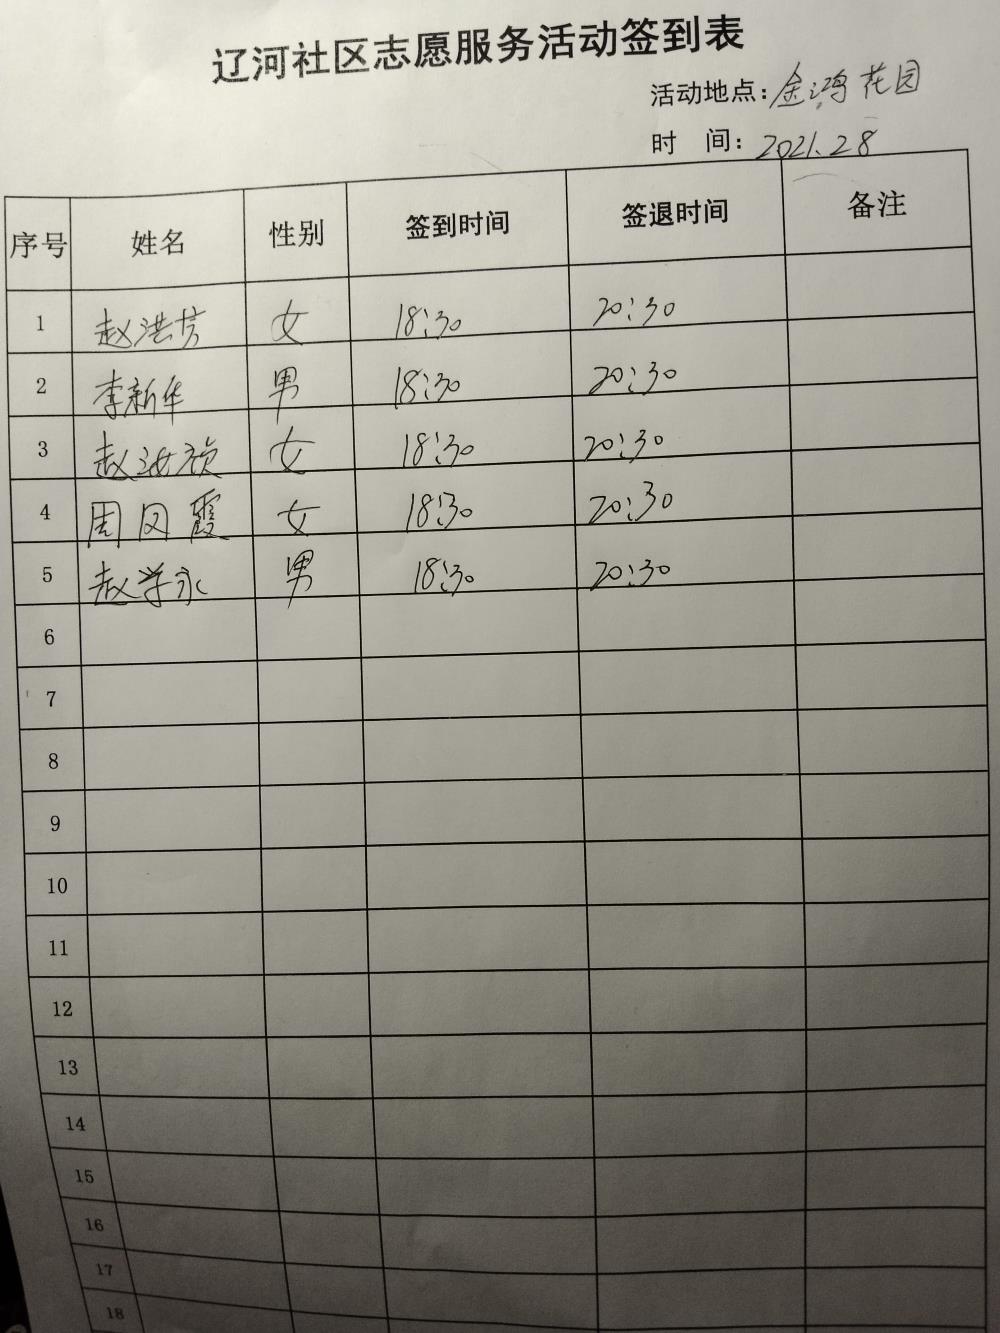 辽河社区志愿服务活动签到表
活动地点：金鸿花园
时 间：2021.28
序号 姓名 性别 签到时间 签退时间 备注
1 赵洪芳 女 18:30 20:30
2 李新华 男 18:30 20:30
3 赵 女 18:30 20:30
4 周凤霞 女 18:30 20:30
5 赵学永 男 18:30 20:30
6
7
8
9
10
11
12
13
14
15
16
17
18